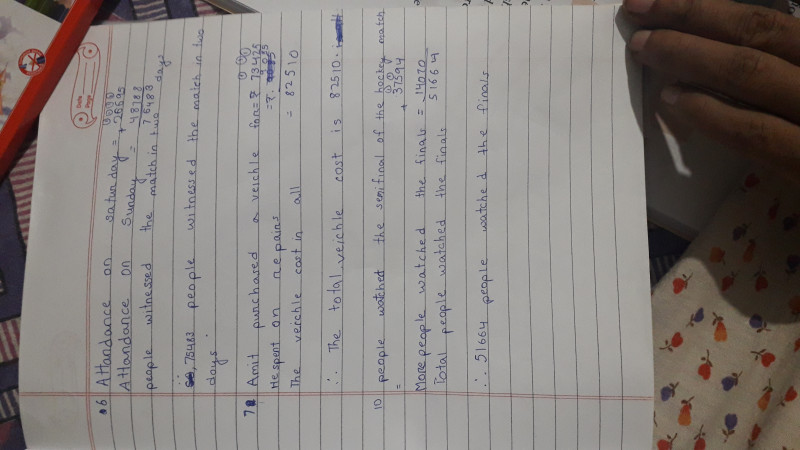 Date
Page
6 Attandance on saturday = 26695
Attandance on Sunday = + 48788
people witnessed the match in two days 75483
∴ 75483 people witnessed the match in two
days.
7 Amit purchased a veichle for = ₹ 73425
He spent on repairs = ₹ 9085
The veichle cost in all = 82510
∴ The total veichle cost is 82510.
10 people watched the semifinal of the hockey match
= 37594
More people watched the finals = + 14070
Total people watched the finals 51664
∴ 51664 people watched the finals